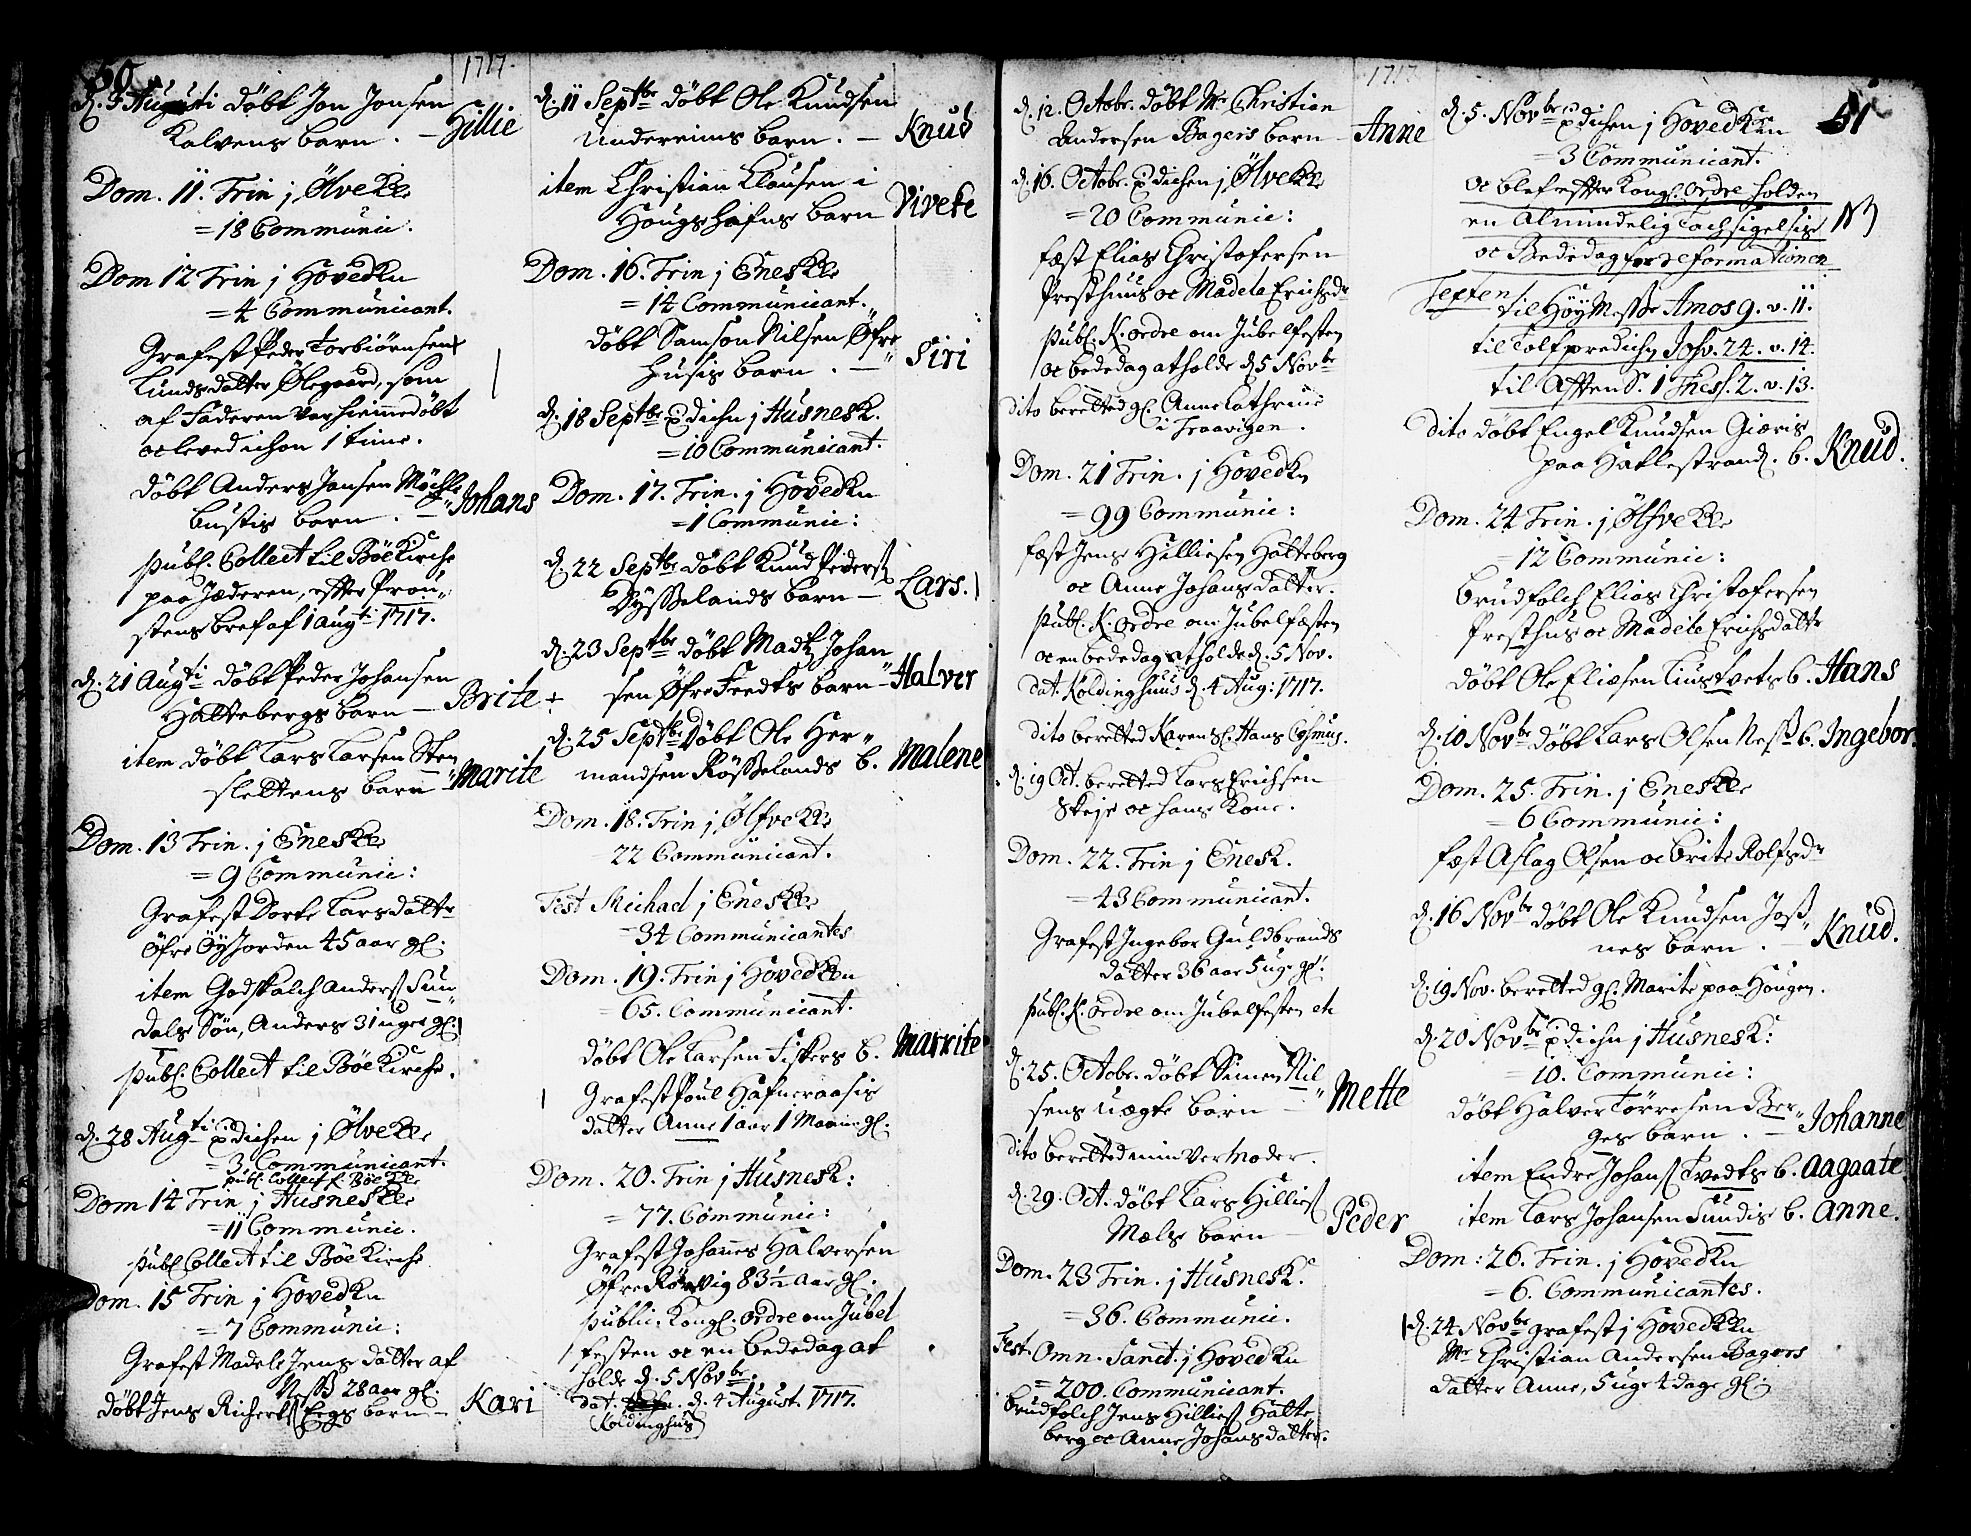 50
1717.
d. 5 Augusti döbt Jon Jonsen
Kalvens barn. — Gillie
Dom. 11. Trin j Ølve KK
= 18 Communic.
Dom 12 Trin j Hovedkn
= 4 Communicant.
Grafest Peder Torbiörnsens
Lunds datter Ølegaard, som
af Faderen var hiemmedöbt
oc levedichon 1 time.
döbt Anders Jansen
bustis barn. — Johans
publ. Collect til Böe Kirche
paa Jæderen, efter Prou„
stens bref af 1 augti 1717.
d. 21 Augti döbt Peder Johansen
Haltebergs barn — Brite
item döbt Lars Larsen Sten
slettens barn — Marite
Dom. 13 Trin. j Enes KK
= 9 Communic:
Grafest Dorte Larsdatter
Öfre Öyjorden 45 aar gl.
item Godskalch Anders Sun„
dals Sön, Anders 31 uger gl.
publ. Collect til Böe Kirche.
d. 28 Augti pdichen j Ølve KK
= 3 Communicant.
publ. Collect t. Böe K
Dom 14 Trin j Husnes KK
= 11 Communic.
publ Collect til Böe Kirche
Dom. 15 Trin j Hovedkn
= 7 Communic:
Grafest Madele Jens datter af
Næss 28 aar gl.
döbt Jens Richerts Eegs barn — Kari
d. 11 Septbr döbt Ole Knudsen
Undereims barn. — Knud
item Christian Clausen i
Hougs hafns barn Viveke
Dom. 16. Trin j Enes KK
= 14 Communicant.
döbt Samson Nilsen Öfre
husis barn. — Siri
d. 18 Septbr pdichn j Husnes K.
= 10 Communicant.
Dom. 17. Trin. j Hovedkn
= 1 Communic:
d. 22 Septbr döbt Knud Peders
Dysselands barn — Lars.
d. 23 Septbr döbt Mads Johan
sen Öfre Feedts barn — Halver
d. 25 Septbr Döbt Ole Her„
mandsen Rösselands b. Malene
Dom. 18. Trin j Ølfve KK
22 Communicant.
Fest Michael j Enes KK
34 Communicantes
Dom. 19. Trin j Hovedkkn
= 65. Communicant.
döbt Ole Larsen Fiskers b. Marrite
Grafest Poul Hafneraasis
datter Anne 1 aar 1 Maanet gl.
Dom. 20. Trin j Husnes K:
= 77. Communic:
Grafest Johannes Halversen
Öfre Rörvig 83½ aar gl.
public. Kongl. ordre om Jubel
festen oc en bededag at
holde d. 5 Novbr.
dat. d. 4 August. 1717.
Koldinghuus
1717.
d. 12. Octobr. döbt Mr Christian
Andersen Bagers barn — Anne
d. 16. Octobr. pdichen j Ølve KK
= 20 Communic:
fæst Elias Christofersen
Presthuus oc Madela Erichsdr
publ. K. ordre om Jubelfesten
oc bededag at holde d. 5 Novbr
dito beretted gl. Anne Cathrine
i Traavigen.
Dom. 21 Trin. j Hovedkn
= 99 Communic:
fæst Jens Hilliesen Halteberg
oc Anne Johans datter.
publ. K. ordre om Jubelfæsten
oc en bededag at holde d. 5 Nov.
dat. Koldinghuus d. 4 Aug: 1717.
dito beretted Karen Sl. Hans Cosmus.
d. 19 Oct. beretted Lars Erichsen
Skeje oc hans Kone.
Dom. 22. Trin j Enes K.
= 43 Communicant.
Grafest Ingebor Guldbrands
datter 36 aar 5 uge gl.
publ. K. ordre om Jubelfesten etc
d. 25. Octobr. döbt Simen Nil
sens Uægte barn — Mette
dito berettedmin Vermoder.
d. 29. Oct. döbt Lars Hillies
Mæls barn — Peder
Dom. 23 Trin. j Husnes K.
= 36. Communic.
Fest. Omn. Sanct. j Hovedkn
= 200. Communicant.
brudfolch Jens Hillies Halte
berg oc Anne Johans datter.
51
d. 5. Novbr pdichen j Hovedkkn
= 3 Communicant.
oc blef efter Kongl. Ordre holden
en Almindelig Tachsigelsis NB
oc Bededag for Reformationen
Texten til Höy M. sse Amos 9. v. 11.
til Tolfpredichn Joh. 24. v. 14.
til Aften S. 1 Thess. 2. v. 13.
dito döbt Engel Knudsen Giæris
paa Hatlestrand. b. Knud.
Dom. 24 Trin. j Ølfve KK
= 12 Communic:
brudfolch Elias Christofersen
Presthus oc Madele Erichsdatr
döbt Ole Eliesen Liustvets b. Hans
d. 10 Novbr döbt Lars Olsen Ness b. Ingebor.
Dom. 25. Trin. j Enes KK
= 6 Communic:
fæst Aslag Olsen oc Brite Rolfsdr
d. 16 Novbr döbt Ole Knudsen Joss„
nes barn. — Knud.
d. 19 Nov. beretted gl. Marite paa Hougen.
d. 20 Novbr pdichn j Husnes K:
= 10. Communic:
döbt Halver Torresen Ber„
ges barn. — Johanne
item Endre Johans Tvedts b. Aagaate
item Lars Johansen Sundis b. Anne.
Dom: 26. Trin. j Hovedkn
= 6. Communicantes.
d. 24 Novbr grafest j Hovedkkn
Mr Christian Andersen Bagers
datter Anne, 5 uge 4 dage gl.